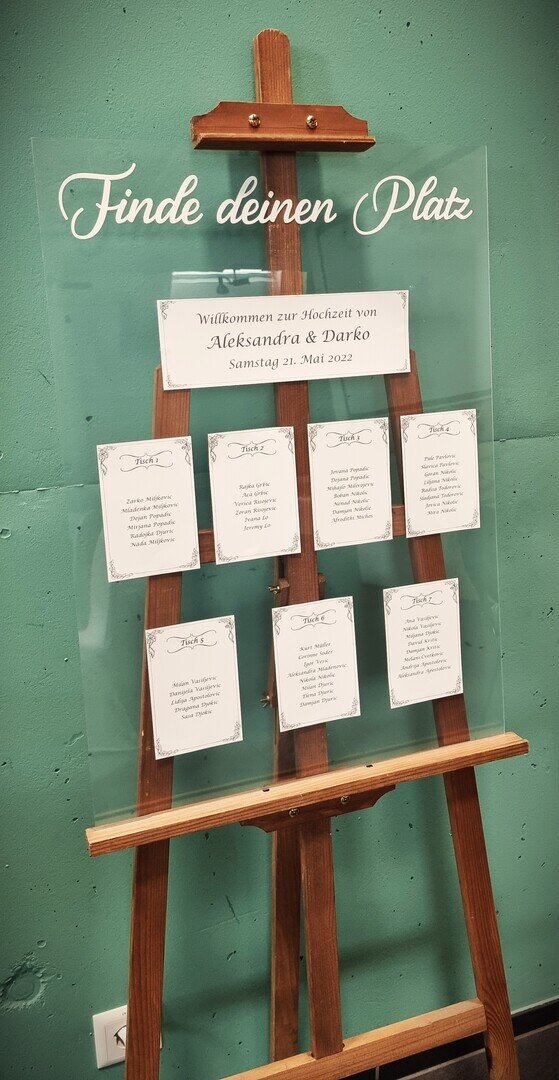 Finde deinen Platz
Willkommen zur Hochzeit von
Aleksandra & Darko
Samstag 21. Mai 2022
Tisch 1
Zarko Miljkovic
Mladenka Miljkovic
Dejan Popadic
Mirjana Popadic
Radojka Djuric
Nada Miljkovic
Tisch 2
Rajka Grbic
Aca Grbic
Vesica Risojevic
Zoran Risojevic
Ivana Lo
Jeremy Lo
Tisch 3
Jovana Popadic
Dejana Popadic
Mihajlo Milivojevic
Boban Nikolic
Nenad Nikolic
Damjan Nikolic
Afroditi Michos
Tisch 4
Pale Pavlovic
Slavica Pavlovic
Goran Nikolic
Liljana Nikolic
Radisa Todorovic
Sladjana Todorovic
Jovica Nikolic
Mira Nikolic
Tisch 5
Milan Vasiljevic
Danijela Vasiljevic
Lidija Apostolovic
Dragana Djokic
Sasa Djokic
Tisch 6
Kurt Müller
Corinne Soder
Igor Vesic
Aleksandra Mladenovic
Nikola Nikolic
Milan Djuric
Elena Djuric
Damjan Djuric
Tisch 7
Ana Vasiljevic
Nikola Vasiljevic
Miljana Djokic
David Krstic
Damjan Krstic
Melani Cvetkovic
Andrija Apostolovic
Aleksandra Apostolovic